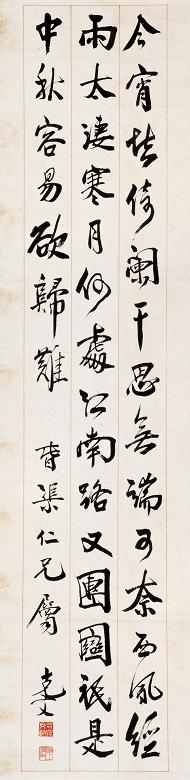 今宵倚闌干思無端可奈西風經
雨太淒寒月何處江南路又團圞祇是
中秋容易欲歸難
渠仁兄屬 克文